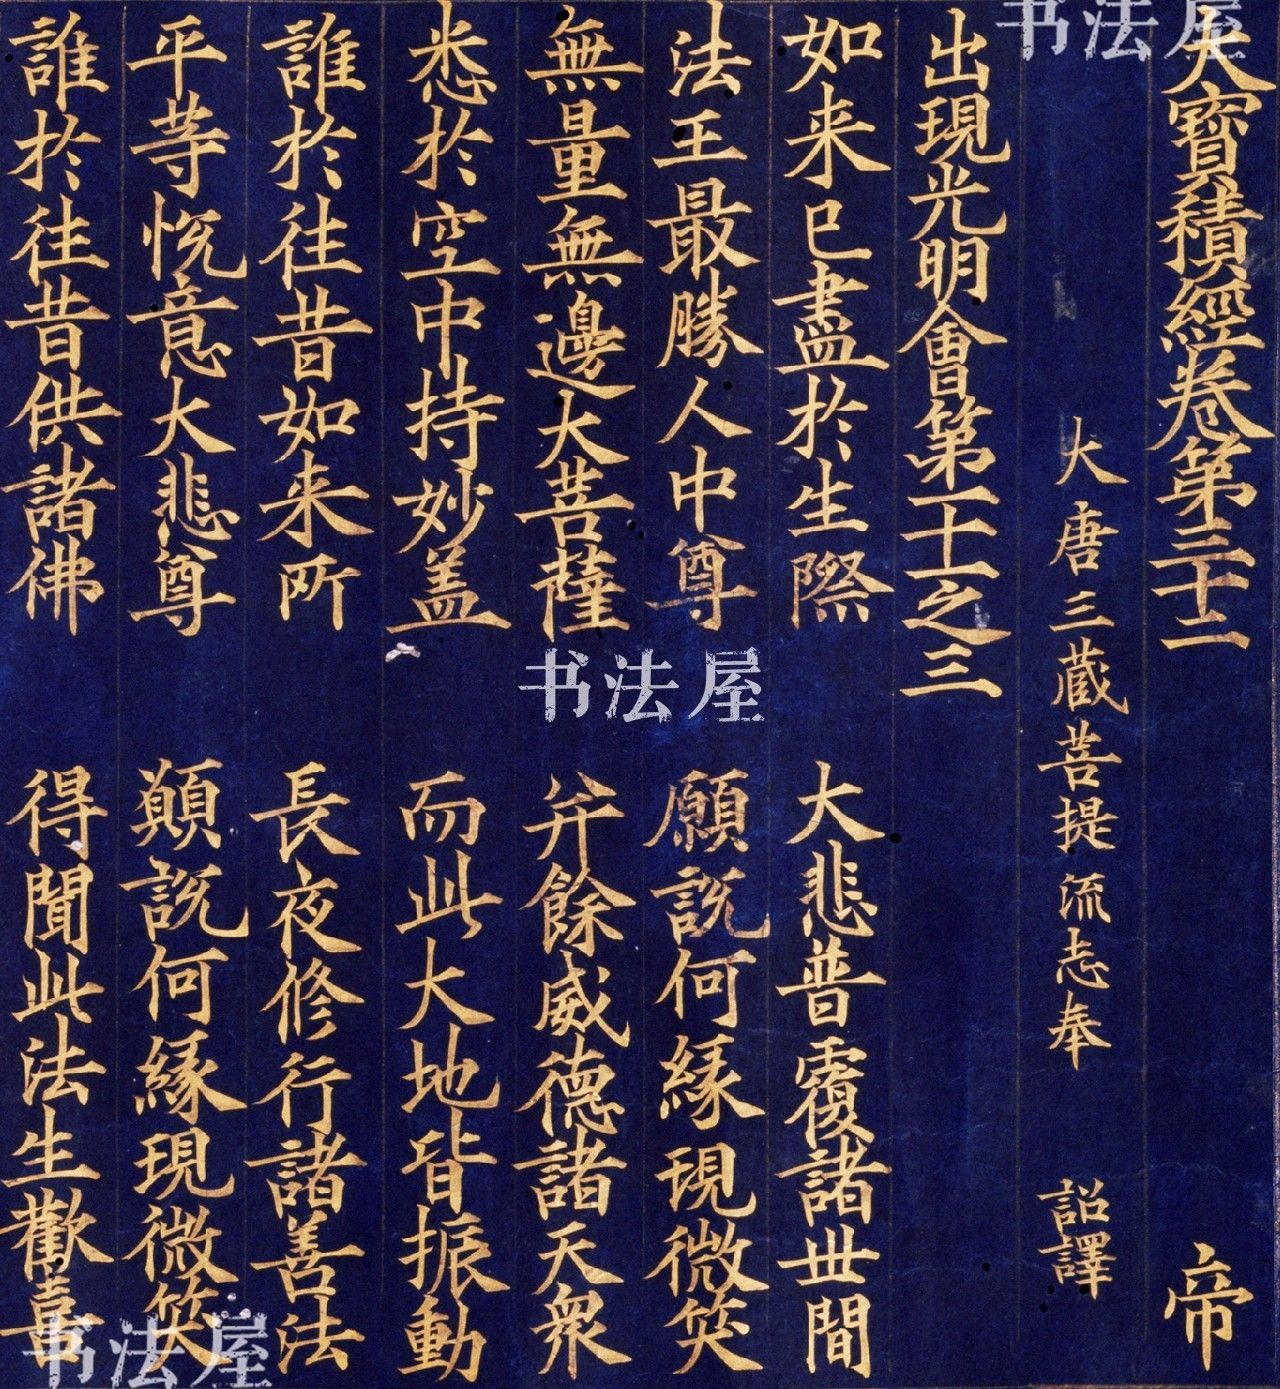 大寳積經卷第三十二 帝
大唐三藏菩提流志奉 詔譯
出現光明會第十一之三
如来已盡於生際 大悲普覆諸世間
法王最勝人中尊 願說何緣現微笑
無量無邊大菩薩 并餘威德諸天衆
悉於空中持妙盖 而此大地皆振動
誰於往昔如来所 長夜修行諸善法
平等悅意大悲尊 顛說何緣現微笑
誰於往昔供諸佛 得聞此法生歡喜
书法屋
书法屋
书法屋